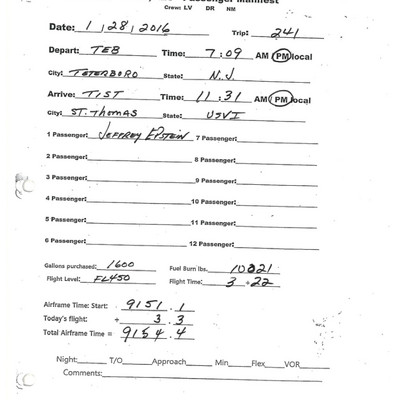 Passenger Manifest
Crew: LV DR NM
Date: 1 / 28 / 2016 Trip: 241
Depart: TEB Time: 7:09 AM / PM local
City: TETERBORO State: N.J.
Arrive: TIST Time: 11:31 AM / PM local
City: ST. THOMAS State: USVI
1 Passenger: JEFFREY EPSTEIN 7 Passenger:
2 Passenger: 8 Passenger:
3 Passenger: 9 Passenger:
4 Passenger: 10 Passenger:
5 Passenger: 11 Passenger:
6 Passenger: 12 Passenger:
Gallons purchased: 1600 Fuel Burn lbs. 10021
Flight Level: FL450 Flight Time: 3 + 22
Airframe Time: Start: 9151 . 1
Today's flight: + 3 . 3
Total Airframe Time = 9154 . 4
Night: T/O Approach Min Flex VOR
Comments: